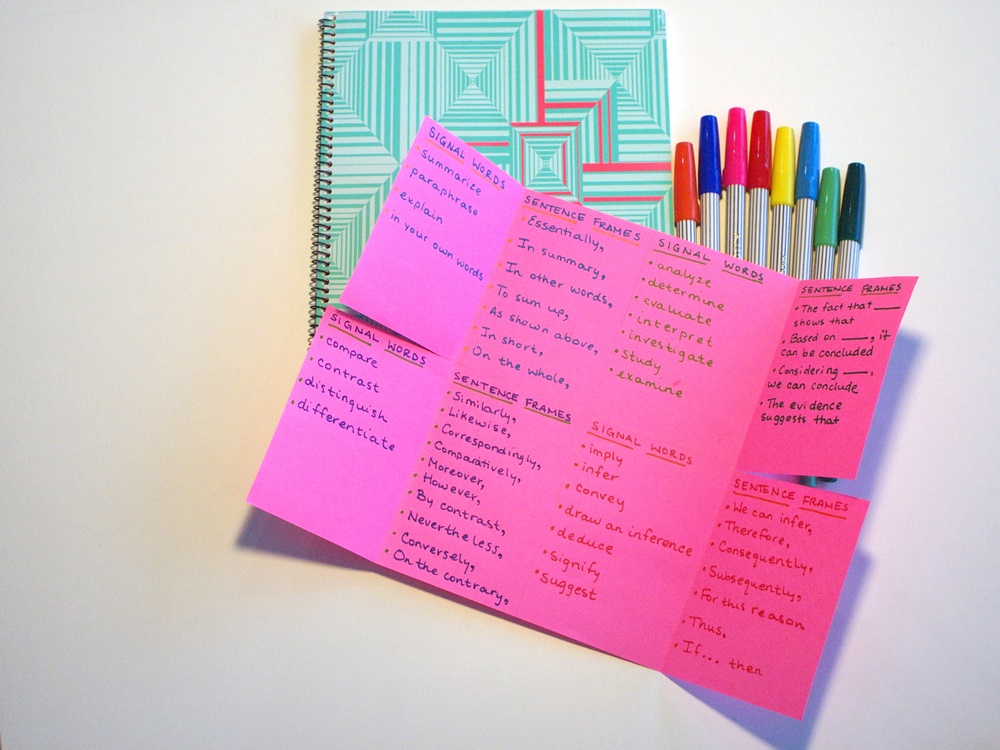 SIGNAL WORDS
• summarize
• paraphrase
• explain
• in your own words
SENTENCE FRAMES
• Essentially,
• In summary,
• In other words,
• To sum up,
• As shown above,
• In short,
• On the whole,
SIGNAL WORDS
• analyze
• determine
• evaluate
• interpret
• investigate
• study
• examine
SENTENCE FRAMES
• The fact that ____
shows that
• Based on ____, it
can be concluded
• Considering ____,
we can conclude
• The evidence
suggests that
SIGNAL WORDS
• compare
• contrast
• distinguish
• differentiate
SENTENCE FRAMES
• Similarly,
• Likewise,
• Correspondingly,
• Comparatively,
• Moreover,
• However,
• By contrast,
• Nevertheless,
• Conversely,
• On the contrary,
SIGNAL WORDS
• imply
• infer
• convey
• draw an inference
• deduce
• signify
• suggest
SENTENCE FRAMES
• We can infer,
• Therefore,
• Consequently,
• Subsequently,
• For this reason
• Thus,
• If... then